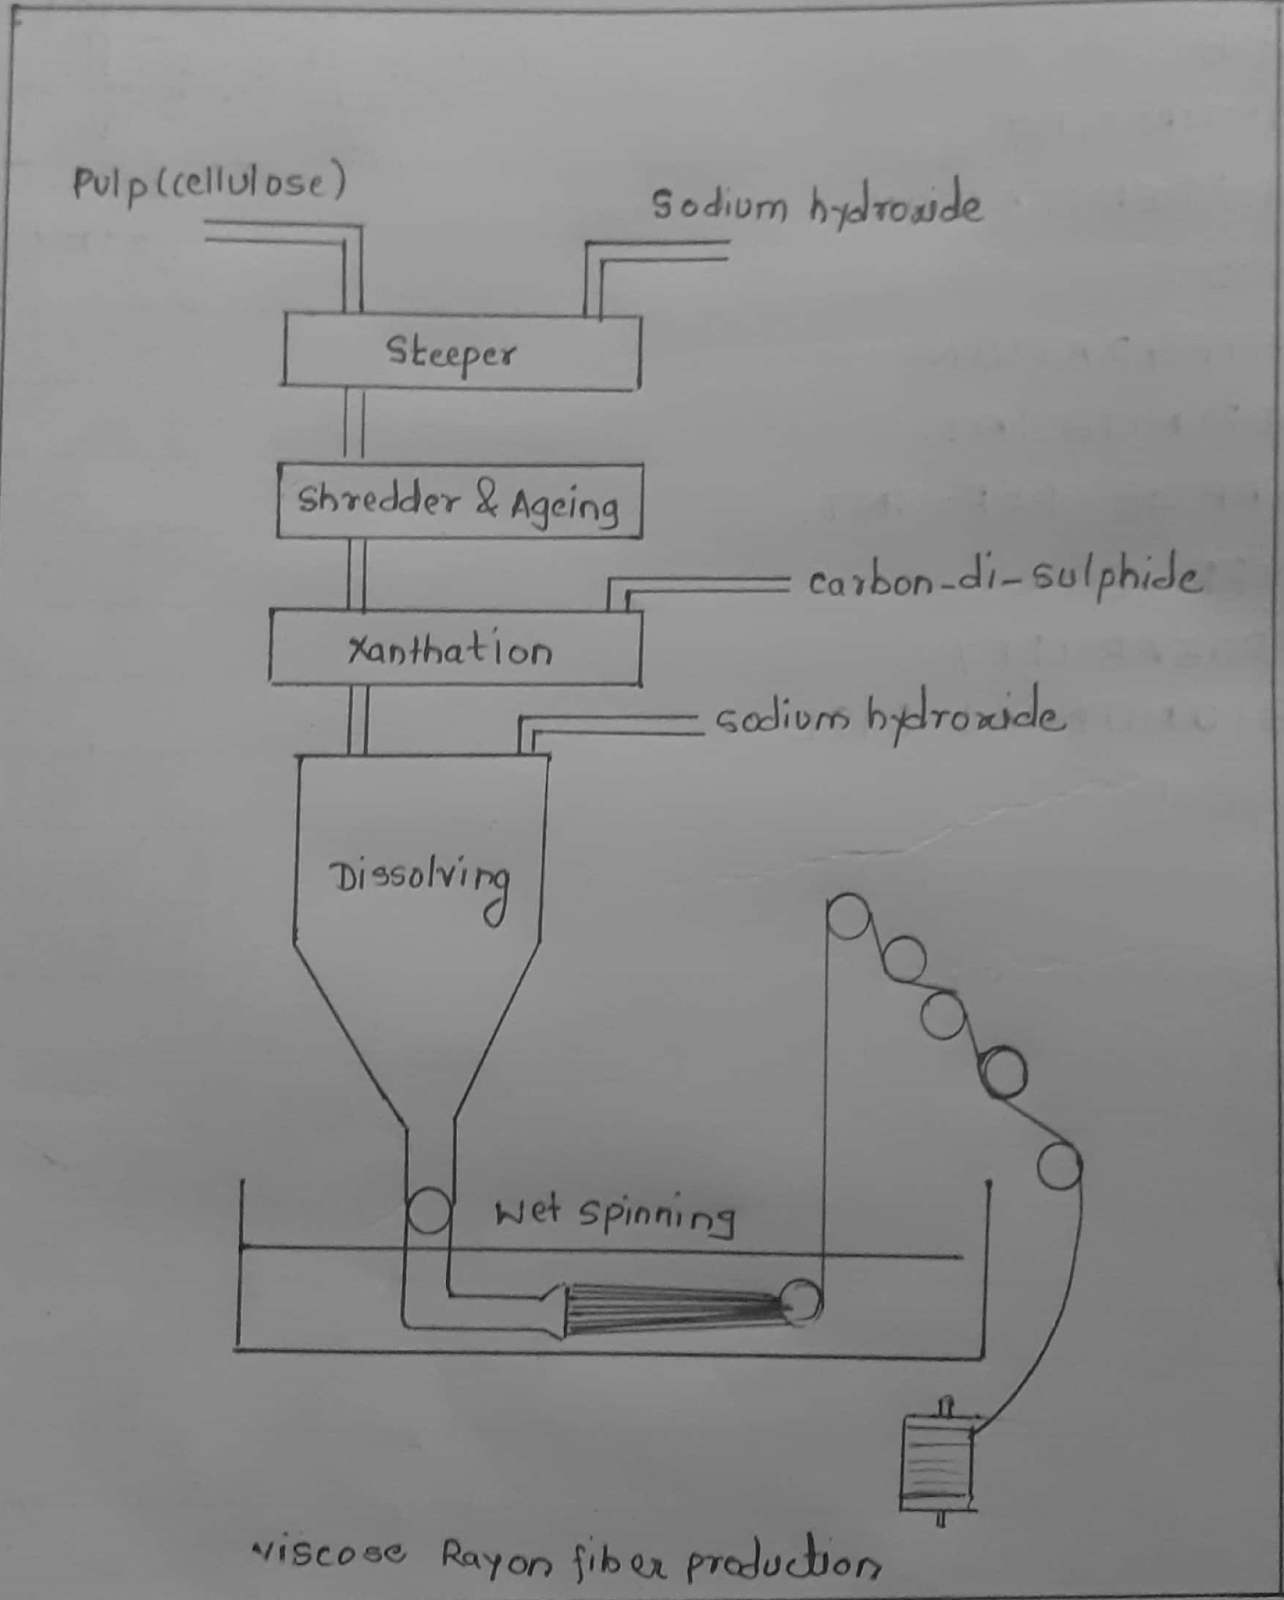 Pulp (cellulose)
Sodium hydroxide
Steeper
Shredder & Ageing
carbon-di-sulphide
Xanthation
sodium hydroxide
Dissolving
Wet spinning
viscose Rayon fiber production